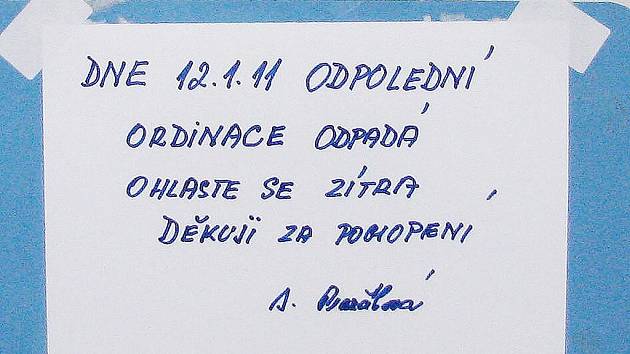 DNE 12.1.11 ODPOLEDNÍ
ORDINACE ODPADÁ
OHLASTE SE ZÍTRA
DĚKUJI ZA POCHOPENÍ